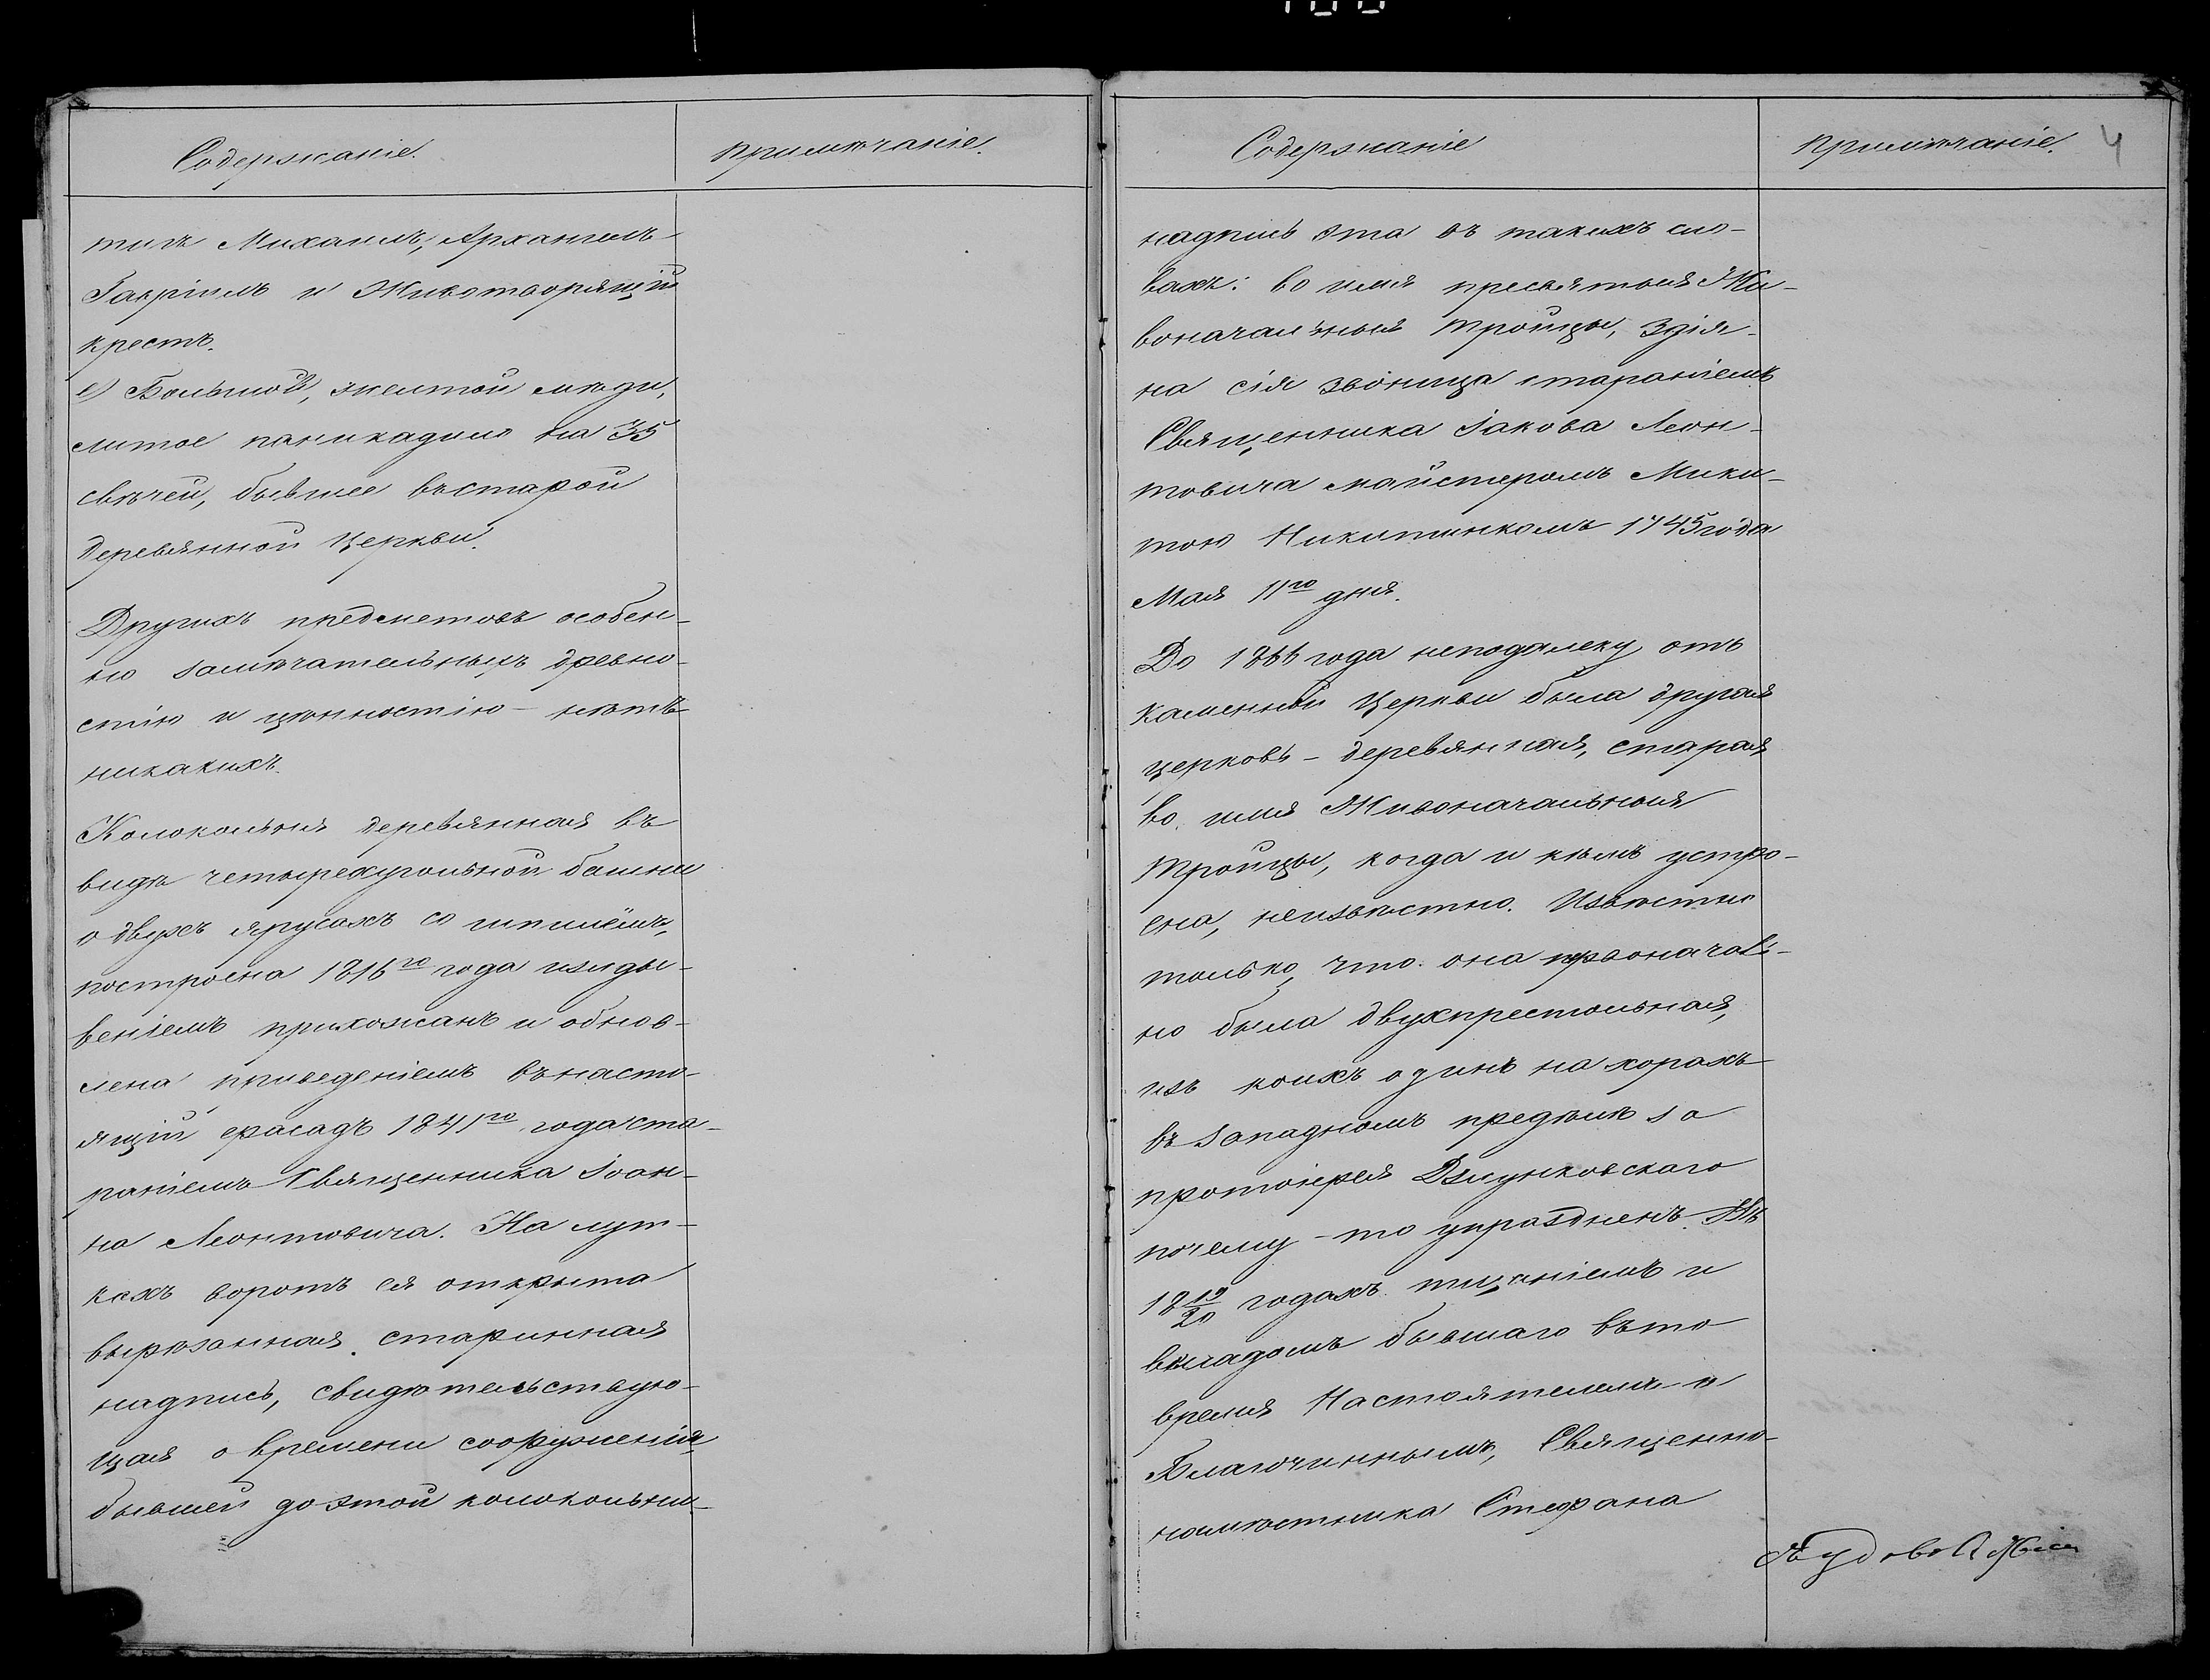 Содержаніе.
Примѣчаніе.
тигъ Михаилъ, Архангелъ
Гавріилъ и Животворящій
крестъ.
е) Большое, желтой мѣди,
литое паникадило на 35
свѣчей, бывшее въ старой
деревянной Церкви.
Другихъ предметовъ особен-
но замѣчательныхъ древно-
стію и цѣнностію – нѣтъ
никакихъ.
Колокольня деревянная въ
видѣ четырехугольной башни
о двухъ ярусахъ со шпилёмъ,
построена 1816го года ижды-
веніемъ прихожанъ и обнов-
лена приведеніемъ въ насто-
ящій фасадъ 1841го года ста-
раніемъ Священника Іоан-
на Леонтовича. На лут-
кахъ воротъ ея открыта
вырѣзанная старинная
надпись, свидѣтельствую-
щая о времени сооруженія
бывшей до этой колокольни-
Содержаніе
Примѣчаніе.
4
надпись эта въ такихъ сло-
вахъ: во имя пресвятыя Жи-
воначальныя Тройцы, здія-
на сія звоница стараніемъ
Священника Іакова Леон-
товича майстеромъ Мики-
тою Никитинкомъ 1745 года
Мая 11го дня.
До 1866 года неподалеку отъ
каменной Церкви была другая
церковь – деревянная, старая
во имя Живоначальныя
Тройцы, когда и кѣмъ устро-
ена, неизвѣстно. Извѣстно
только, что она првоначаль-
но была двухпрестольная,
изъ коихъ одинъ на хорахъ
въ западномъ предѣлѣ за
протоіерея Дзлунковскаго
почему-то упраздненъ. Въ
18 19/20 годахъ тщаніемъ и
вкладомъ бывшаго въ то
время Настоятелемъ и
Благочиннымъ, Священно-
намѣстника Стефана